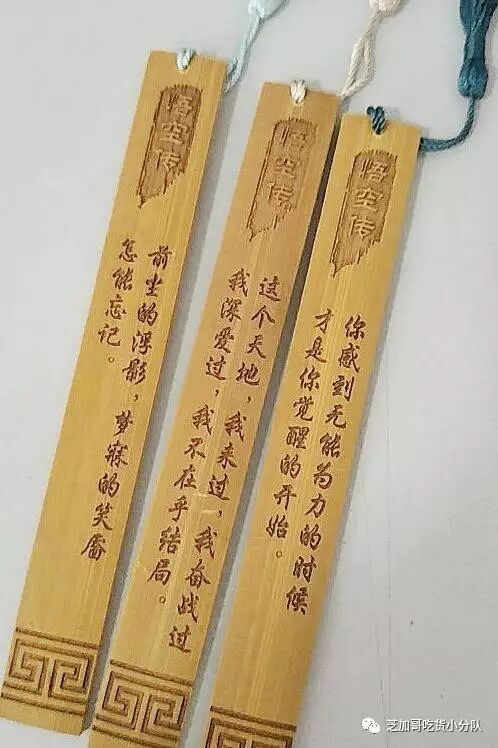 悟空传
前尘的浮影，梦寐的笑靥
怎能忘记。
悟空传
这个天地，我来过，我奋战过
我深爱过，我不在乎结局。
悟空传
你感到无能为力的时候
才是你觉醒的开始。
芝加哥吃货小分队